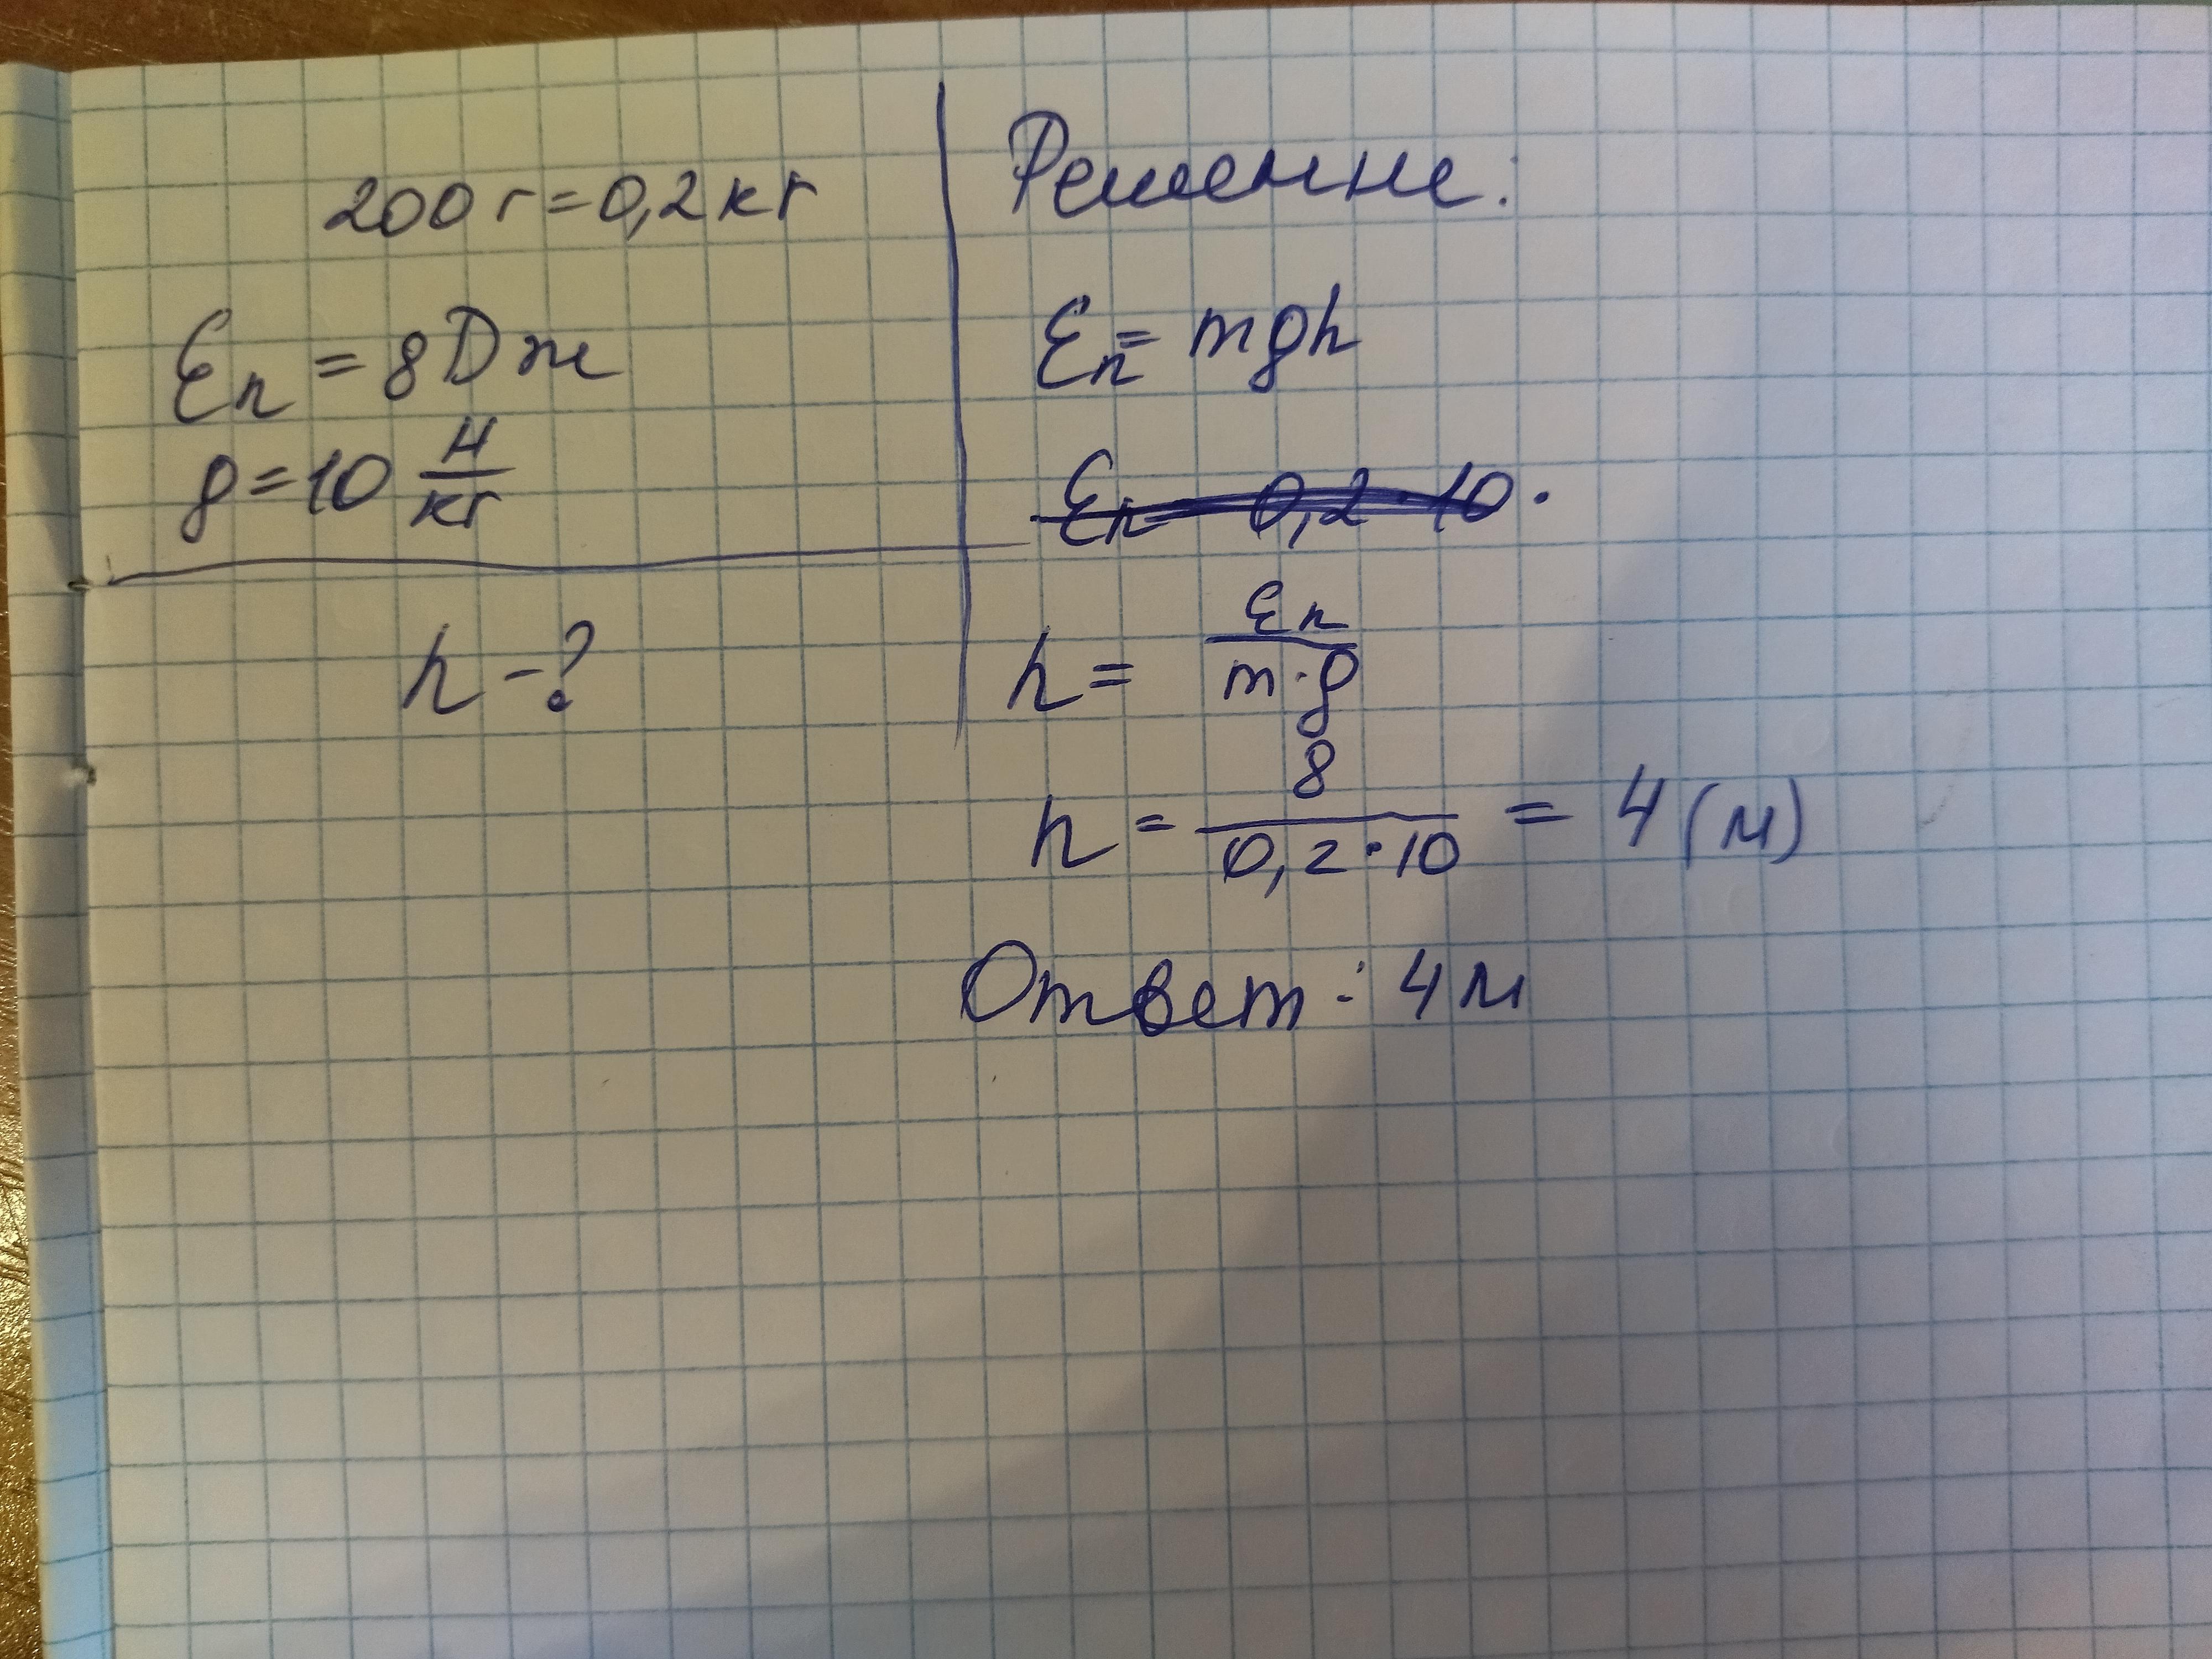 200 г = 0,2 кг
Eп = 8 Дж
g = 10 Н/кг
h - ?
Решение:
Eп = mgh
Eп = 0,2 · 10 ·
h = Eп/m·g
h = 8/0,2·10 = 4 (м)
Ответ: 4 м